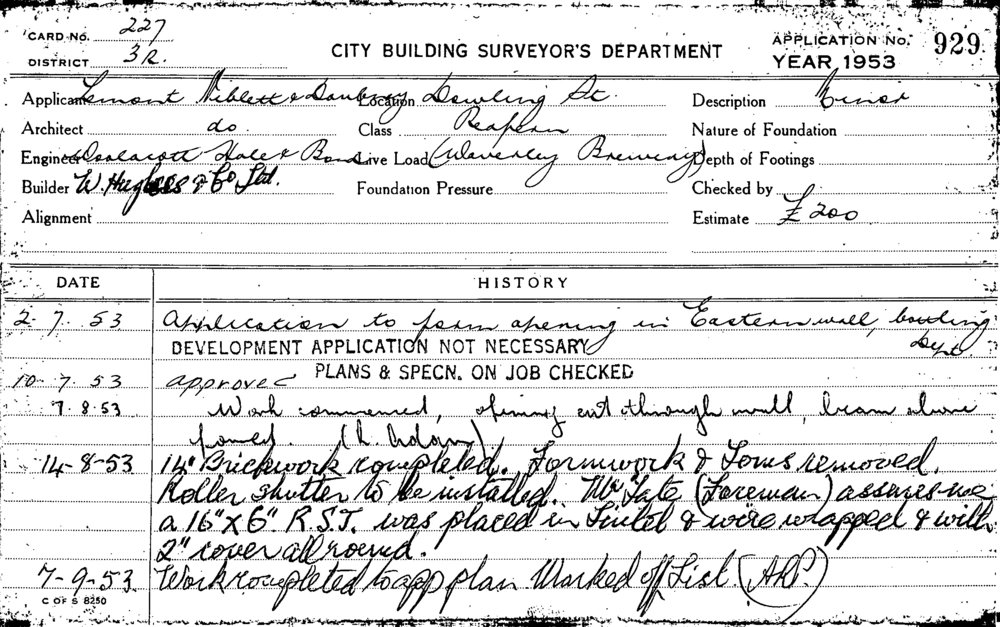 CARD No. 227
DISTRICT 3R.
CITY BUILDING SURVEYOR'S DEPARTMENT
APPLICATION No. 929
YEAR 1953
Applicant Lamont Niblett & Daubney Location Dowling St. Description Minor
Architect do Class Reaform Nature of Foundation
Engineer Woolacott Hale & Bond Live Load (Waverley Brewery) Depth of Footings
Builder W. Hughes & Co Ltd. Foundation Pressure Checked by
Alignment Estimate £200
DATE HISTORY
2-7-53 Application to form opening in Eastern wall, bowling
Dept.
DEVELOPMENT APPLICATION NOT NECESSARY
PLANS & SPECN. ON JOB CHECKED
10-7-53 approved
7.8.53 Work commenced, opening cut through wall, beam above
poured.
14-8-53 14" Brickwork completed. Formwork & Toms removed.
Roller shutter to be installed. Mr Tate (Foreman) assures me
a 16" x 6" R.S.J. was placed in Lintel & wire wrapped & with
2" cover all round.
7-9-53 Work completed to app plan Marked off List (ARP.)
C OF S 8250